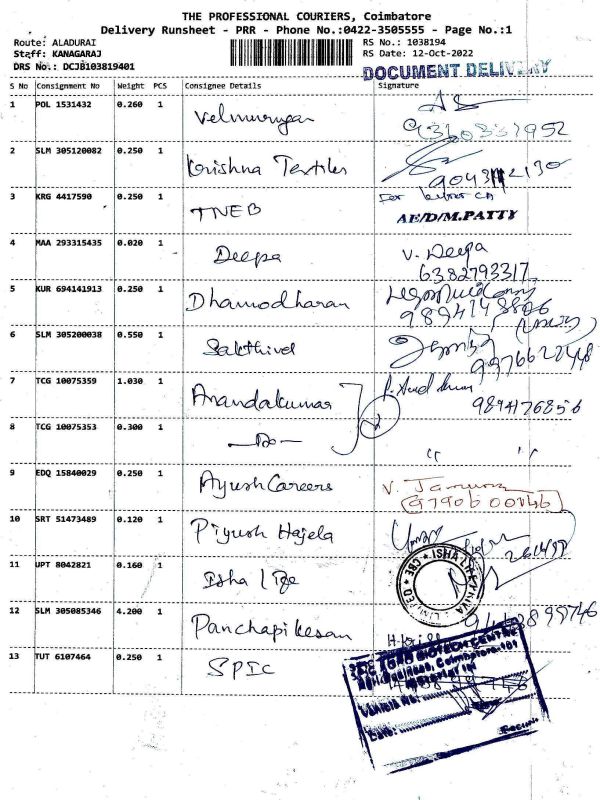 THE PROFESSIONAL COURIERS, Coimbatore
Delivery Runsheet - PRR - Phone No.:0422-3505555 - Page No.:1
Route: ALADURAI RS No.: 1038194
Staff: KANAGARAJ RS Date: 12-Oct-2022
DRS No.: DCJB103819401
DOCUMENT DELIVERY
S No Consignment No Weight PCS Consignee Details Signature
1 POL 1531432 0.260 1 Velmurugan
2 SLM 305120082 0.250 1 Krishna Textiles
3 KRG 4417590 0.250 1 TNEB For
AE/D/M.PATTY
4 MAA 293315435 0.020 1 Deepa V. Deepa
6382793317
5 KUR 694141913 0.250 1 Dhamodharan
6 SLM 305200038 0.550 1 Sakthivel
7 TCG 10075359 1.030 1 Anandakumar
9894176856
8 TCG 10075353 0.300 1 —Do— " "
9 EDQ 15840029 0.250 1 Ayush Careers V.
10 SRT 51473489 0.120 1 Piyush Hajela
11 UPT 8042821 0.160 1 Isha Life
12 SLM 305085346 4.200 1 Panchapikesan
13 TUT 6107464 0.250 1 SPIC